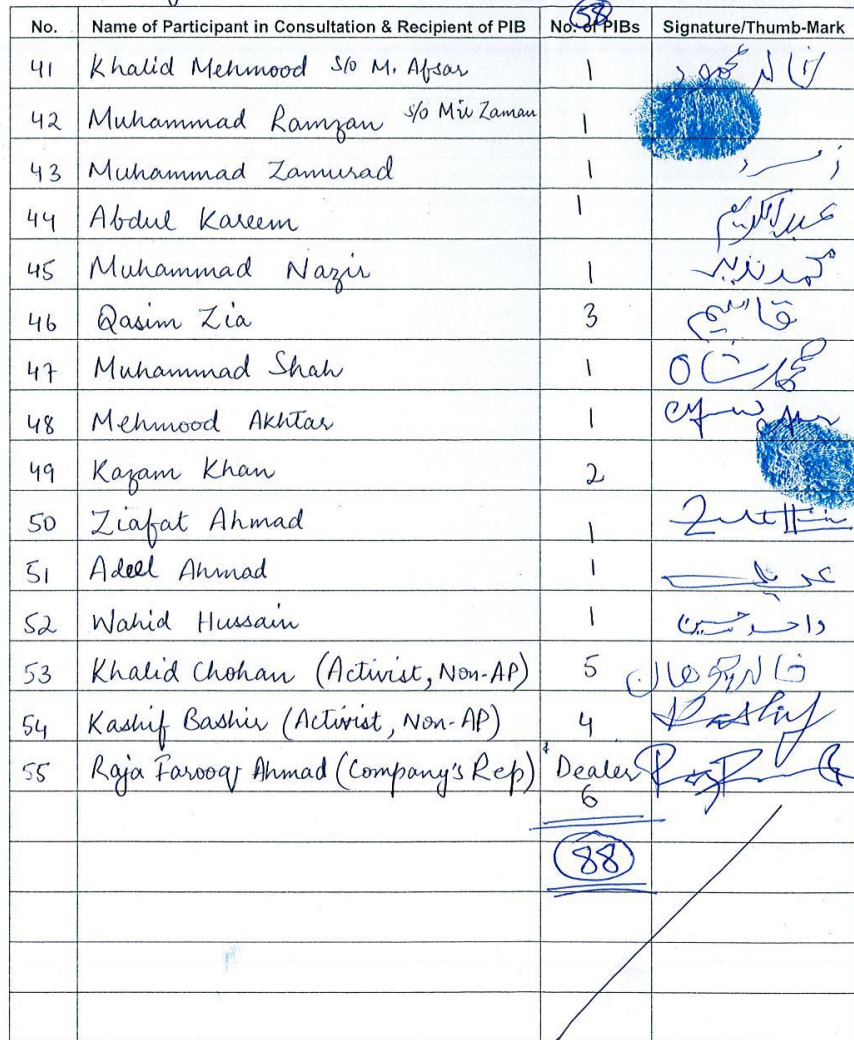 58
No. Name of Participant in Consultation & Recipient of PIB No. of PIBs Signature/Thumb-Mark
41 Khalid Mehmood s/o M. Afsar 1 خالد محمود
42 Muhammad Ramzan s/o Mir Zaman 1
43 Muhammad Zamurad 1 زمرد
44 Abdul Kareem 1 عبدالکریم
45 Muhammad Nazir 1 محمد نذیر
46 Qasim Zia 3 قاسم
47 Muhammad Shah 1 محمد شاه
48 Mehmood Akhtar 1
49 Kazam Khan 2
50 Ziafat Ahmad 1
51 Adeel Ahmad 1 عدیل
52 Wahid Hussain 1 واحد حسین
53 Khalid Chohan (Activist, Non-AP) 5 خالد چوهان
54 Kashif Bashir (Activist, Non-AP) 4 Kashif
55 Raja Farooq Ahmad (Company's Rep) Dealer
6
88